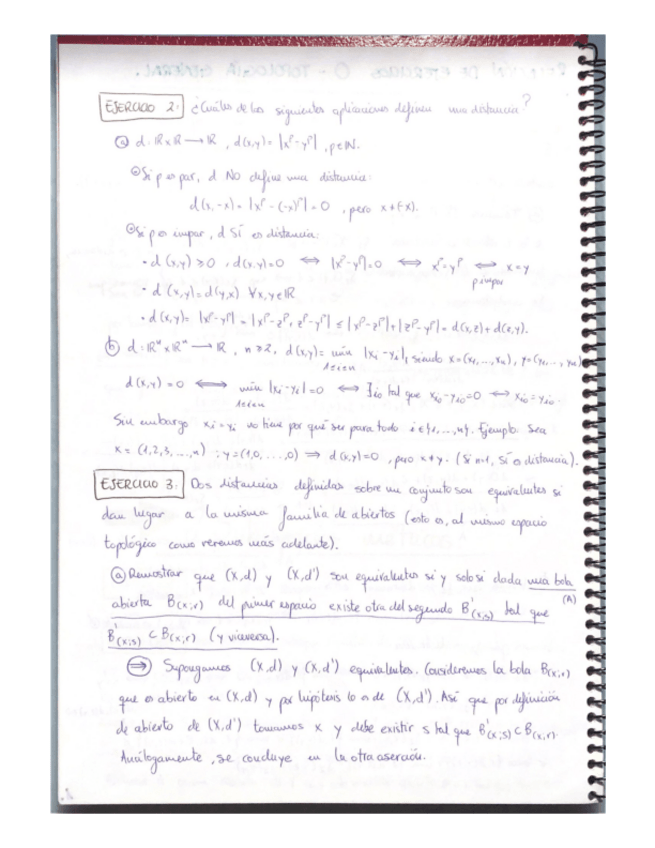 EJERCICIO 2: ¿Cuáles de las siguientes aplicaciones definen una distancia?
ⓐ d: ℝxℝ → ℝ, d(x,y)= |xᵖ-yᵖ|, p∈ℕ.
Si p es par, d NO define una distancia:
d(x,-x)= |xᵖ-(-x)ᵖ| = 0, pero x≠(-x).
Si p es impar, d SÍ es distancia:
• d(x,y) ≥ 0, d(x,y)=0 ⟺ |xᵖ-yᵖ|=0 ⟺ xᵖ=yᵖ ⟺ x=y
p impar
• d(x,y)=d(y,x) ∀x,y∈ℝ
• d(x,y)= |xᵖ-yᵖ| = |xᵖ-zᵖ+zᵖ-yᵖ| ≤ |xᵖ-zᵖ|+|zᵖ-yᵖ| = d(x,z)+d(z,y).
ⓑ d: ℝⁿxℝⁿ → ℝ, n≥2, d(x,y)= mín |xᵢ-yᵢ|, siendo x=(x₁,...,xₙ), y=(y₁,...,yₙ)
1≤i≤n
d(x,y)=0 ⟺ mín |xᵢ-yᵢ|=0 ⟺ ∃i₀ tal que xᵢ₀-yᵢ₀=0 ⟺ xᵢ₀=yᵢ₀.
1≤i≤n
Sin embargo xᵢ=yᵢ no tiene por qué ser para todo i∈{1,...,n}. Ejemplo: Sea
x=(1,2,3,...,n); y=(1,0,...,0) ⟹ d(x,y)=0, pero x≠y. (Si n=1, SÍ es distancia).
EJERCICIO 3: Dos distancias definidas sobre un conjunto son equivalentes si
dan lugar a la misma familia de abiertos (esto es, al mismo espacio
topológico como veremos más adelante).
ⓐ Demostrar que (X,d) y (X,d') son equivalentes si y solo si dada una bola
(A)
abierta B(x;r) del primer espacio existe otra del segundo B'(x;s) tal que
B'(x;s) ⊂ B(x;r) (y viceversa).
⟹ Supongamos (X,d) y (X,d') equivalentes. Consideremos la bola B(x;r)
que es abierto en (X,d) y por hipótesis lo es de (X,d'). Así que por definición
de abierto de (X,d') tomamos x y debe existir s tal que B'(x;s) ⊂ B(x;r).
Análogamente, se concluye en la otra aserción.